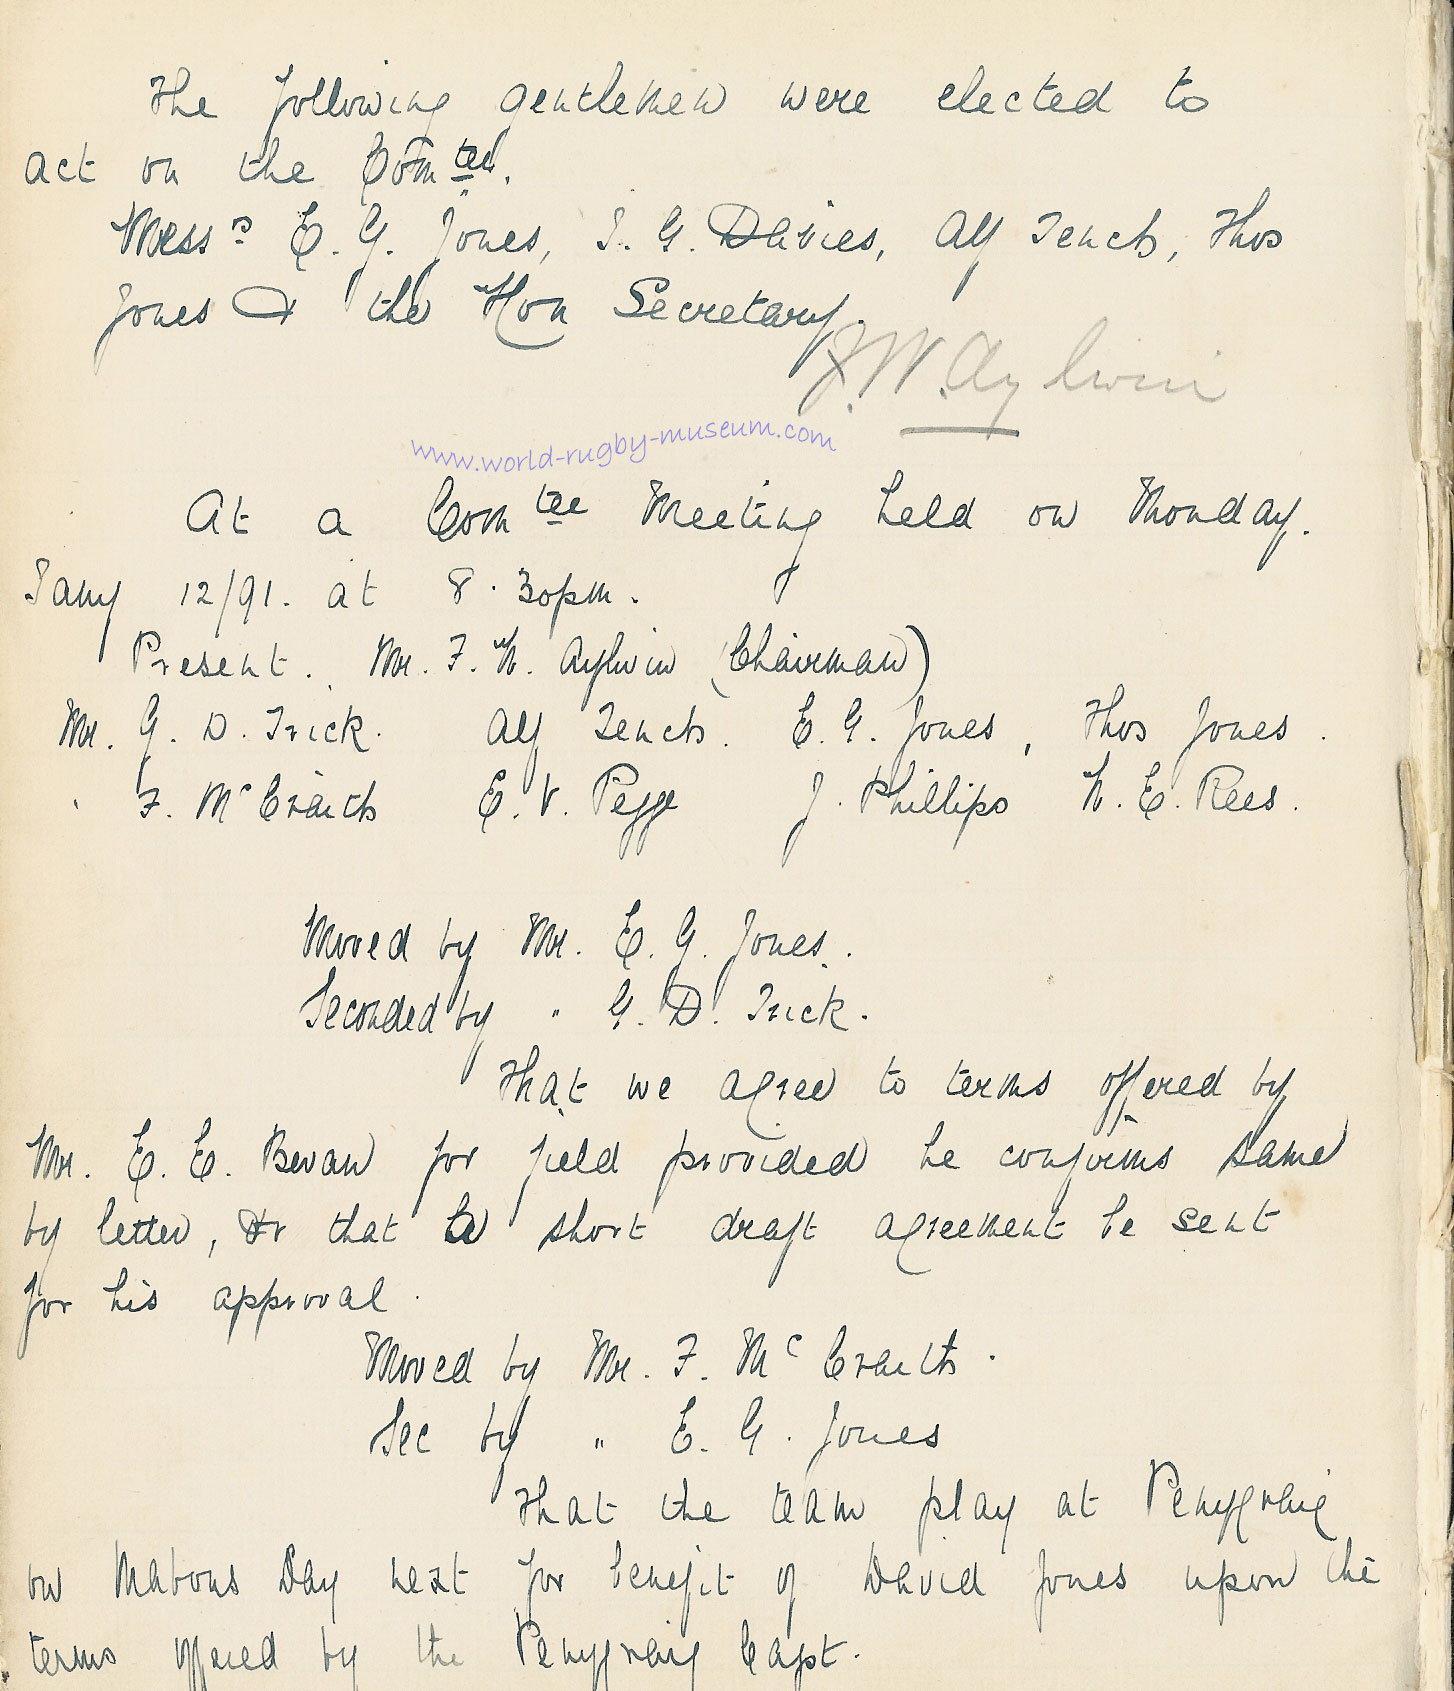 The following gentlemen were elected to
act on the Com tee.
Mess rs E. G. Jones, J. G. Davies, Alf Tench, Thos
Jones & the Hon Secretary.
F. W. Aylwin
www.world-rugby-museum.com
At a Com tee Meeting held on Monday.
Jany 12/91. at 8.30pm.
Present. Mr. F. W. Aylwin (Chairman)
Mr. G. D. Trick. Alf Tench. E. G. Jones, Thos Jones.
" F. Mc Craith E. V. Pegge J. Phillips W. E. Rees.
Moved by Mr. E. G. Jones.
Seconded by " G. D. Trick.
That we agree to terms offered by
Mr. E. E. Bevan for field provided he confirms same
by letter, & that a short draft agreement be sent
for his approval.
Moved by Mr. F. Mc Craith.
Sec by " E. G. Jones
That the team play at Penygraig
on Mabons Day next for benefit of David Jones upon the
terms offered by the Penygraig Capt.